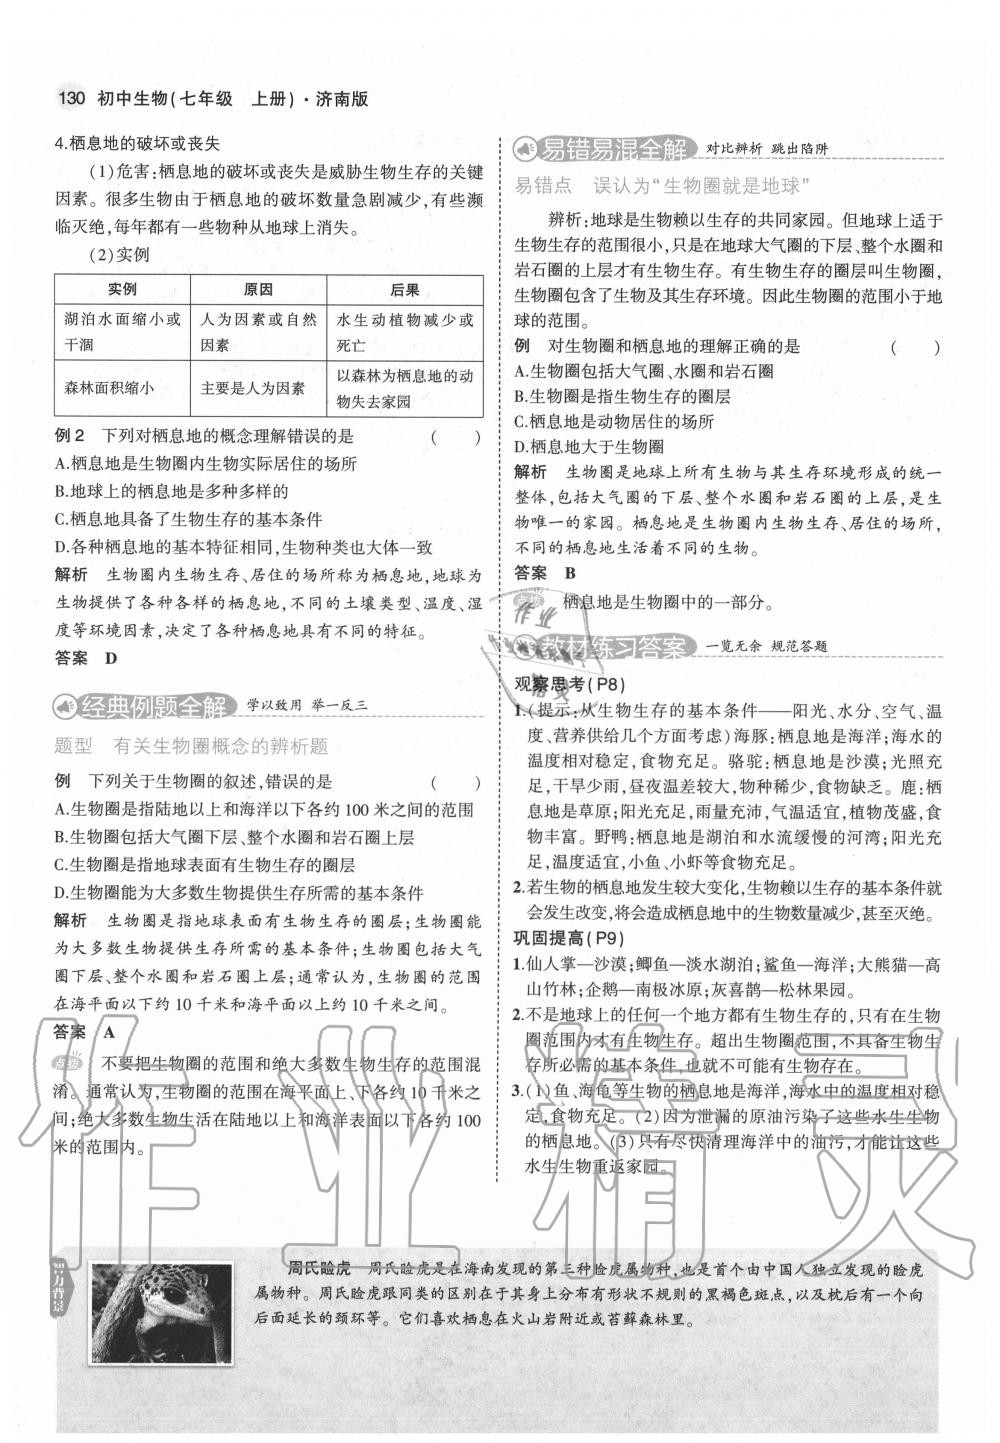 130 初中生物(七年级 上册)·济南版
4.栖息地的破坏或丧失
(1)危害:栖息地的破坏或丧失是威胁生物生存的关键
因素。很多生物由于栖息地的破坏数量急剧减少,有些濒
临灭绝,每年都有一些物种从地球上消失。
(2)实例
实例 原因 后果
湖泊水面缩小或干涸 人为因素或自然因素 水生动植物减少或死亡
森林面积缩小 主要是人为因素 以森林为栖息地的动物失去家园
例2 下列对栖息地的概念理解错误的是 ( )
A.栖息地是生物圈内生物实际居住的场所
B.地球上的栖息地是多种多样的
C.栖息地具备了生物生存的基本条件
D.各种栖息地的基本特征相同,生物种类也大体一致
解析 生物圈内生物生存、居住的场所称为栖息地,地球为
生物提供了各种各样的栖息地,不同的土壤类型、温度、湿
度等环境因素,决定了各种栖息地具有不同的特征。
答案 D
经典例题全解 学以致用 举一反三
题型 有关生物圈概念的辨析题
例 下列关于生物圈的叙述,错误的是 ( )
A.生物圈是指陆地以上和海洋以下各约100米之间的范围
B.生物圈包括大气圈下层、整个水圈和岩石圈上层
C.生物圈是指地球表面有生物生存的圈层
D.生物圈能为大多数生物提供生存所需的基本条件
解析 生物圈是指地球表面有生物生存的圈层;生物圈能
为大多数生物提供生存所需的基本条件;生物圈包括大气
圈下层、整个水圈和岩石圈上层;通常认为,生物圈的范围
在海平面以下约10千米和海平面以上约10千米之间。
答案 A
点拨 不要把生物圈的范围和绝大多数生物生存的范围混
淆。通常认为,生物圈的范围在海平面上、下各约10千米之
间;绝大多数生物生活在陆地以上和海洋表面以下各约100
米的范围内。
易错易混全解 对比辨析 跳出陷阱
易错点 误认为“生物圈就是地球”
辨析:地球是生物赖以生存的共同家园。但地球上适于
生物生存的范围很小,只是在地球大气圈的下层、整个水圈和
岩石圈的上层才有生物生存。有生物生存的圈层叫生物圈,
生物圈包含了生物及其生存环境。因此生物圈的范围小于地
球的范围。
例 对生物圈和栖息地的理解正确的是 ( )
A.生物圈包括大气圈、水圈和岩石圈
B.生物圈是指生物生存的圈层
C.栖息地是动物居住的场所
D.栖息地大于生物圈
解析 生物圈是地球上所有生物与其生存环境形成的统一
整体,包括大气圈的下层、整个水圈和岩石圈的上层,是生
物唯一的家园。栖息地是生物圈内生物生存、居住的场所,
不同的栖息地生活着不同的生物。
答案 B
点拨 栖息地是生物圈中的一部分。
教材练习答案 一览无余 规范答题
观察思考(P8)
1.(提示:从生物生存的基本条件——阳光、水分、空气、温
度、营养供给几个方面考虑)海豚:栖息地是海洋;海水的
温度相对稳定,食物充足。骆驼:栖息地是沙漠;光照充
足,干旱少雨,昼夜温差较大,物种稀少,食物缺乏。鹿:栖
息地是草原;阳光充足,雨量充沛,气温适宜,植物茂盛,食
物丰富。野鸭:栖息地是湖泊和水流缓慢的河湾;阳光充
足,温度适宜,小鱼、小虾等食物充足。
2.若生物的栖息地发生较大变化,生物赖以生存的基本条件就
会发生改变,将会造成栖息地中的生物数量减少,甚至灭绝。
巩固提高(P9)
1.仙人掌—沙漠;鲫鱼—淡水湖泊;鲨鱼—海洋;大熊猫—高
山竹林;企鹅—南极冰原;灰喜鹊—松林果园。
2.不是地球上的任何一个地方都有生物生存的,只有在生物
圈范围内才有生物生存。超出生物圈范围,不具备生物生
存所必需的基本条件,也就不可能有生物存在。
3.(1)鱼、海龟等生物的栖息地是海洋,海水中的温度相对稳
定,食物充足。(2)因为泄漏的原油污染了这些水生生物
的栖息地。(3)只有尽快清理海洋中的油污,才能让这些
水生生物重返家园。
知力背景
周氏睑虎 周氏睑虎是在海南发现的第三种睑虎属物种,也是首个由中国人独立发现的睑虎
属物种。周氏睑虎跟同类的区别在于其身上分布有形状不规则的黑褐色斑点,以及枕后有一个向
后面延长的颈环等。它们喜欢栖息在火山岩附近或苔藓森林里。
作业精灵